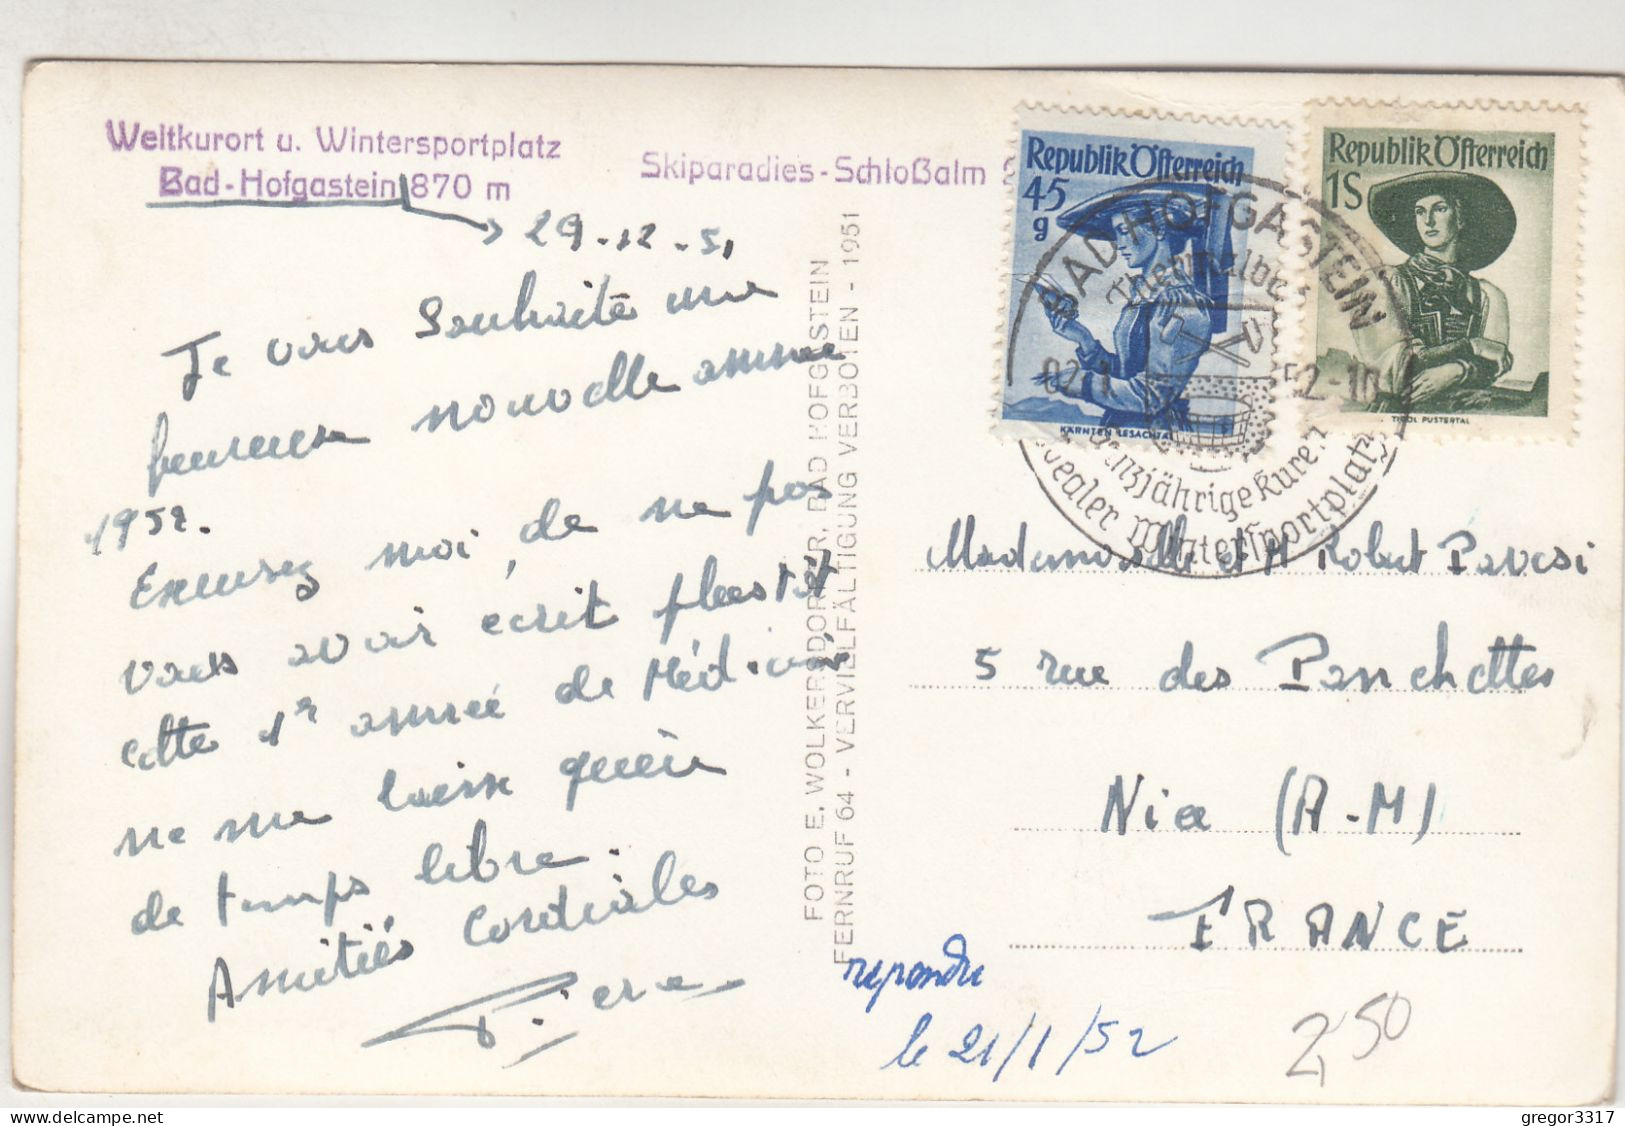 Weltkurort u. Wintersportplatz
Bad-Hofgastein 870 m
Skiparadies-Schloßalm
29-12-51
Je vous Souhaite une
heureuse nouvelle année
1952.
Excusez moi, de ne pas
vous avoir écrit plustôt
cette 1r année de Médicine
ne me laisse guère
de temps libre.
Amitiés Cordiales
Pierre
FOTO E. WOLKERSDORFER, BAD HOFGASTEIN
FERNRUF 64 - VERVIELFÄLTIGUNG VERBOTEN - 1951
Republik Österreich
45
g
KÄRNTEN LESACHTAL
Republik Österreich
1S
TIROL PUSTERTAL
BAD HOFGASTEIN
02.1
52-10
Ganzjährige Kurezt
Idealer Wintersportplatz
Mademoiselle et M Robert Pavesi
5 rue des Ponchettes
Nice (A-M)
FRANCE
repondre
le 21/1/52
2,50
gregor3317